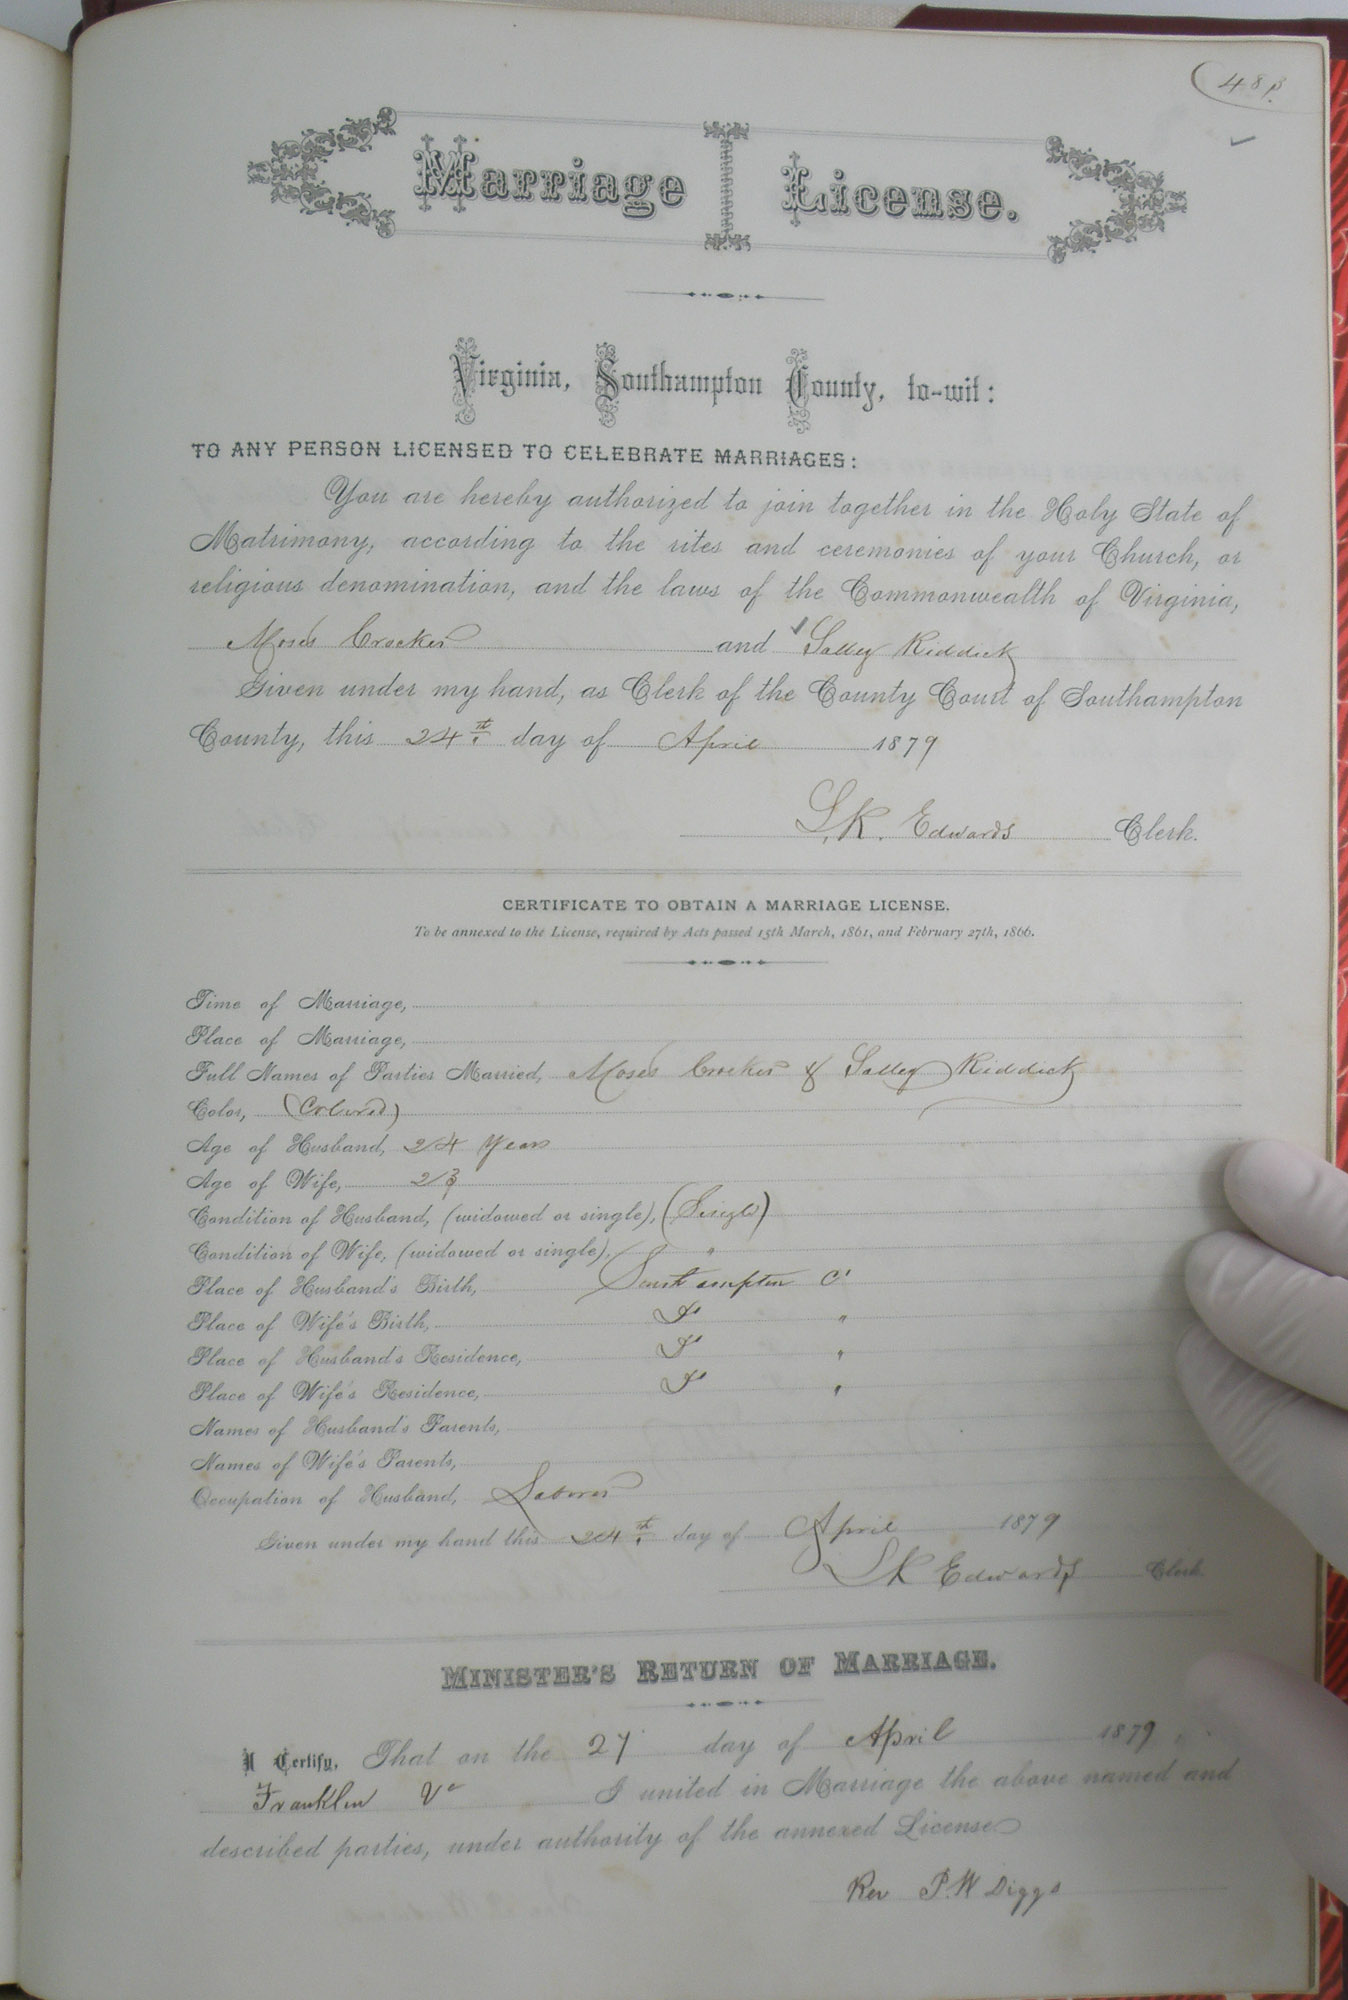 48 p.
Marriage License.
Virginia, Southampton County, to-wit:
TO ANY PERSON LICENSED TO CELEBRATE MARRIAGES:
You are hereby authorized to join together in the Holy State of
Matrimony, according to the rites and ceremonies of your Church, or
religious denomination, and the laws of the Commonwealth of Virginia,
Moses Crocker and Salley Riddick
Given under my hand, as Clerk of the County Court of Southampton
County, this 24th day of April 1879
L. K. Edwards Clerk.
CERTIFICATE TO OBTAIN A MARRIAGE LICENSE.
To be annexed to the License, required by Acts passed 15th March, 1861, and February 27th, 1866.
Time of Marriage,
Place of Marriage,
Full Names of Parties Married, Moses Crocker & Salley Riddick
Color, (Colored)
Age of Husband, 24 Years
Age of Wife, 23
Condition of Husband, (widowed or single), (Single)
Condition of Wife, (widowed or single), "
Place of Husband's Birth, Southampton Co
Place of Wife's Birth, Do "
Place of Husband's Residence, Do "
Place of Wife's Residence, Do "
Names of Husband's Parents,
Names of Wife's Parents,
Occupation of Husband, Laborer
Given under my hand this 24th day of April 1879
L K Edwards Clerk.
MINISTER'S RETURN OF MARRIAGE.
I Certify, That on the 27 day of April 1879,
Franklin Va I united in Marriage the above named and
described parties, under authority of the annexed License
Rev P. W Diggs